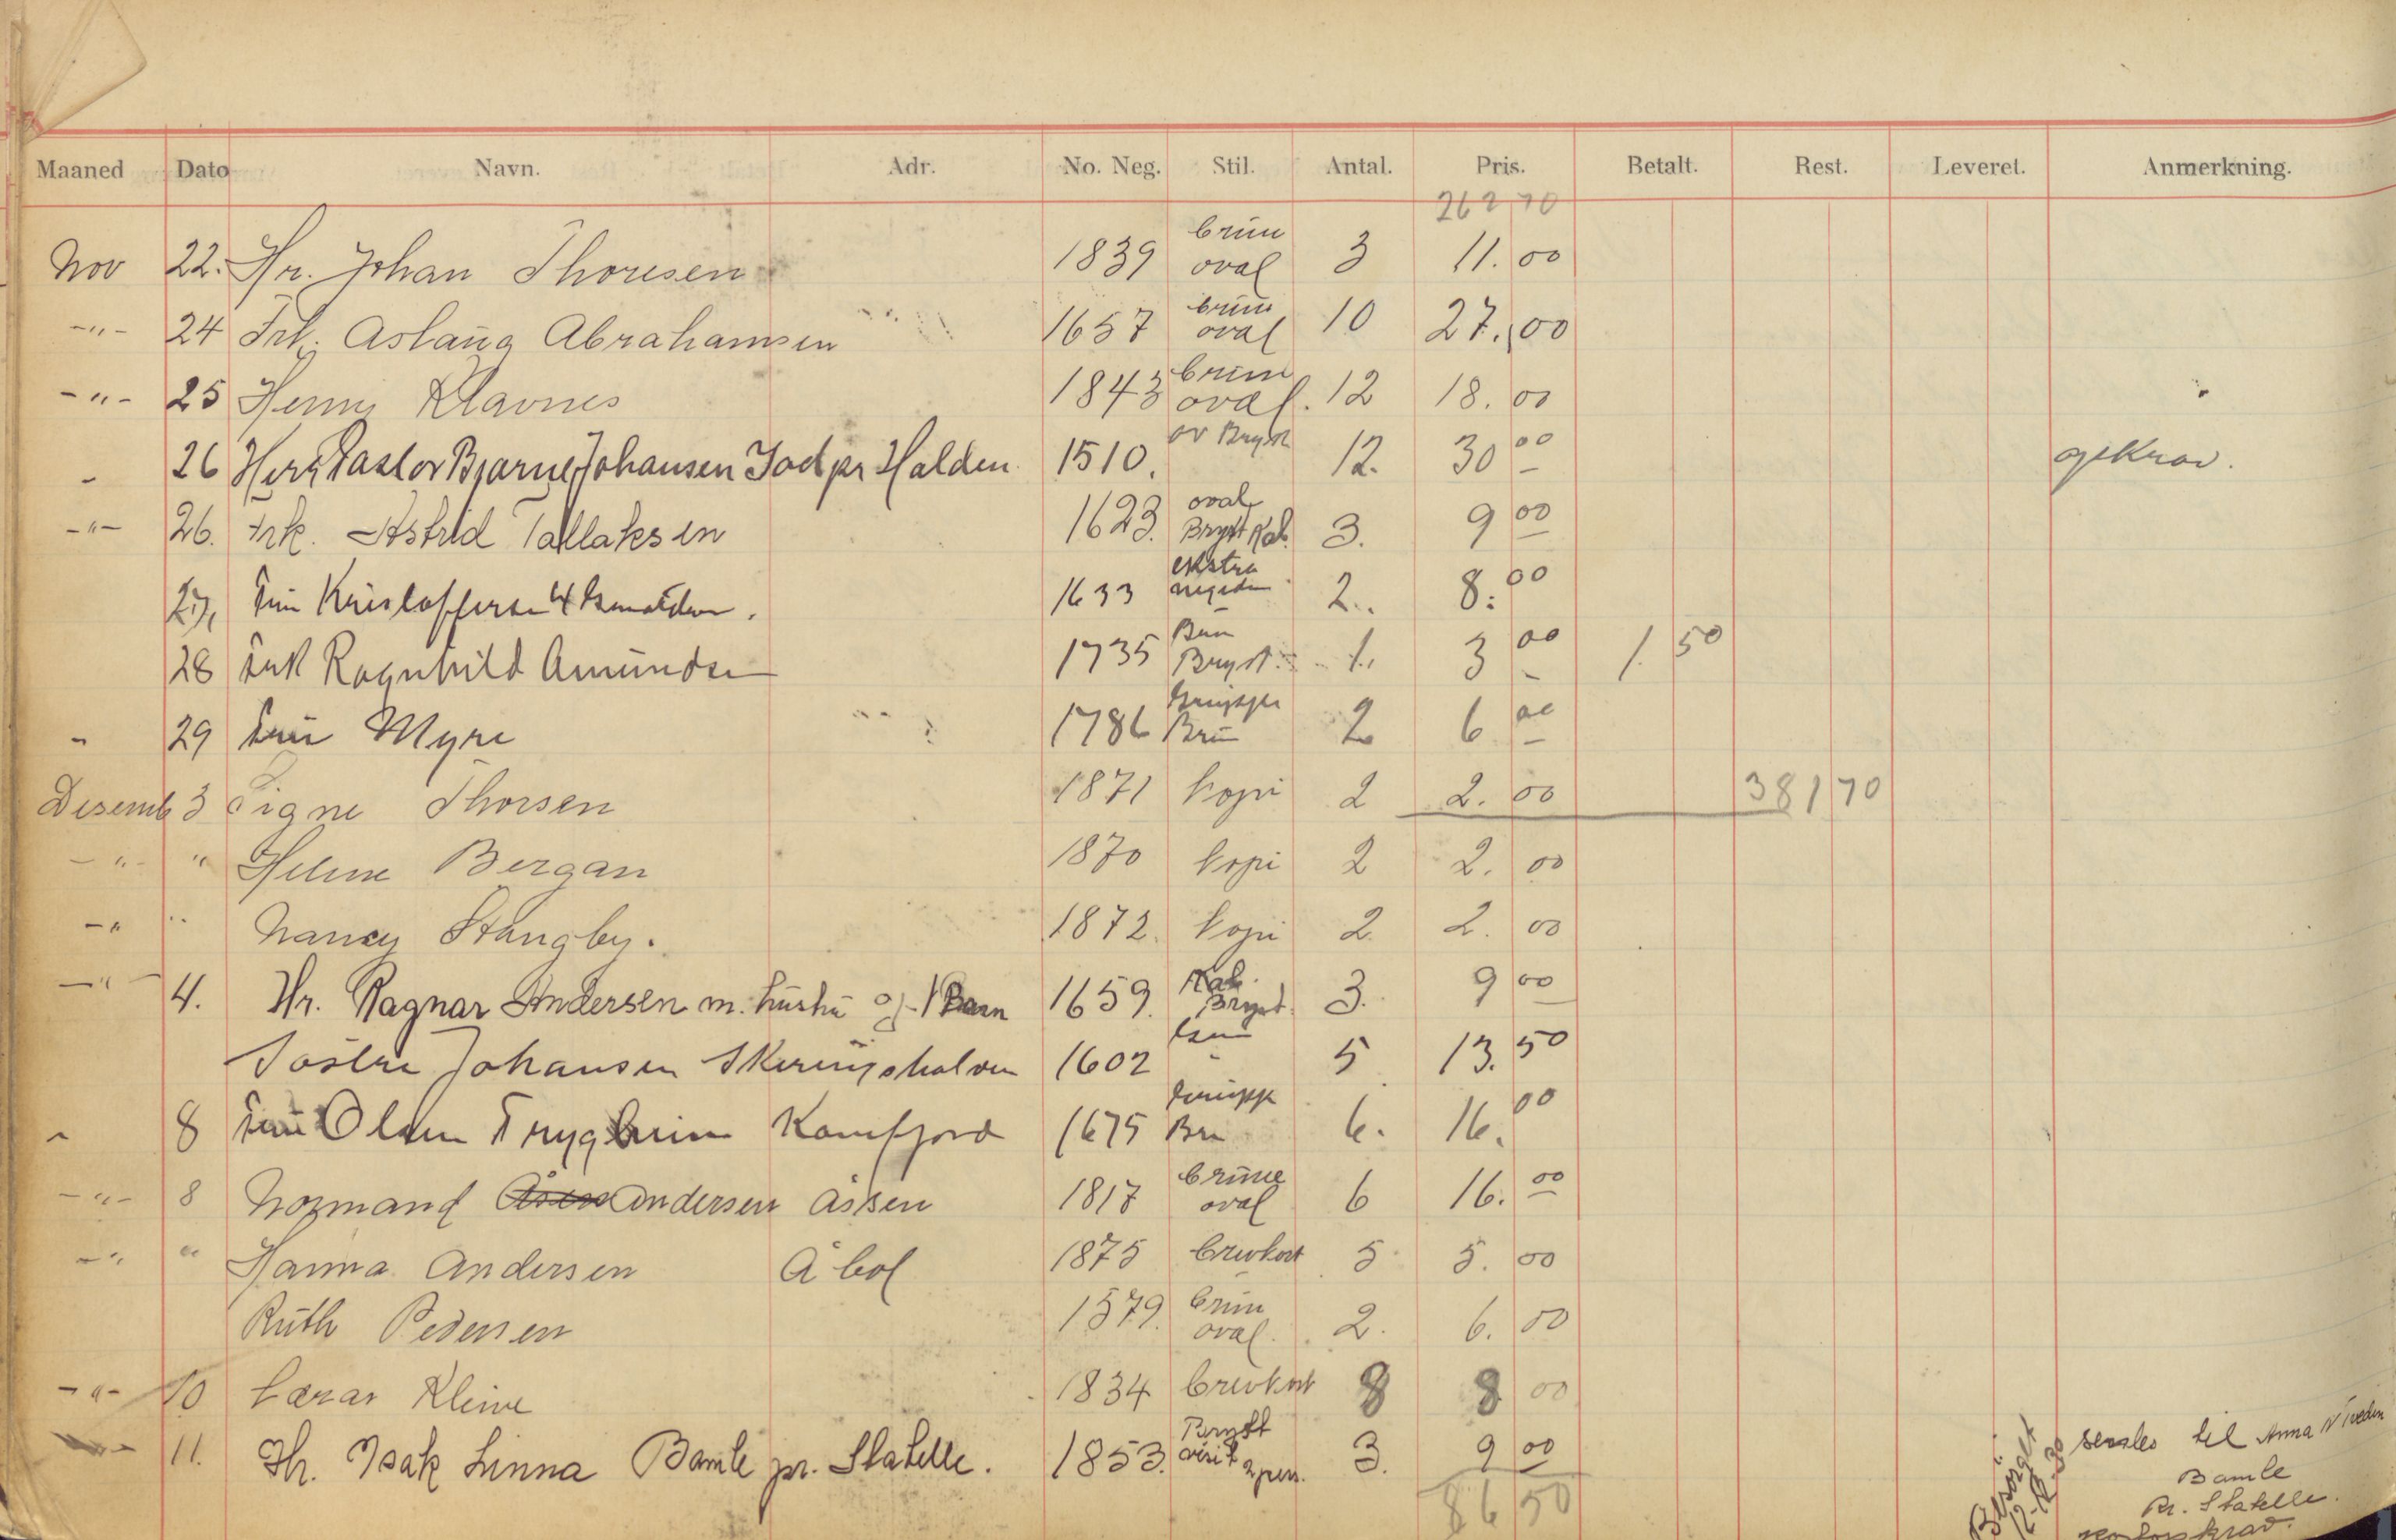 Maaned Dato Navn. Adr. No. Neg. Stil. Antal. Pris. Betalt. Rest. Leveret. Anmerkning.
262 70
Nov 22. Hr. Johan Thoresen 1839 brun oval 3 11.00
-"- 24 Frk. Aslaug Abrahamsen 1657 brun oval 10 27.00
-"- 25 Henny Klavnes 1843 brun oval. 12 18.00
- 26 Herr Pastor Bjarne Johansen Jod pr Halden. 1510. ov Bryst 12. 30 00
-"- 26. Frk. Astrid Tallaksen 1623. oval Bryst Kab. 3. 9 00
27, Fru Kristoffersen 1633 ekstra 2.. 8.00
28 Frk Ragnhild Amundsen 1735 Brun Bryst. 1., 3 00 1. 50
" 29 Fru Myre 1786 Brun 2 6 00
Desemb 3 Signe Thorsen 1871 kopi 2 2.00 381 70
-"- " Helene Bergan 1870 kopi 2 2.00
-" " Nancy Stangby. 1872. kopi 2. 2.00
-"- 4. Hr. Ragnar Andersen m. hustru og 1 Barn 1659. Kab. Bryst. 3. 9 00
Søstre Johansen 1602 brun 5 13.50
8 Fru Olsen Trygheim Kamfjord 1675 Bru 6. 16.00
-"- 8 Normand Andersen Åssen 1817 brune oval 6 16.00
-"- " Hanna Andersen Åbol 1875 brevkort 5 5.00
Ruth Pedersen 1579. brun oval. 2. 6.00
-"- 10 Lærar Kleive 1834 brevkort 8 8 00
-"- 11. Hr. Isak Linna Bamle pr. Statelle. 1853. Bryst visit 2 pers. 3. 9 00
86 50
Besørget 12-12-30
sendes til Anna N Tveden
Bamle
Pr. Statelle.